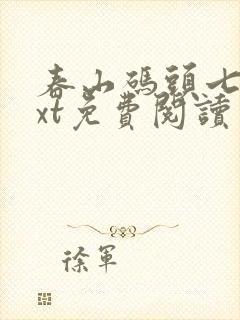 春山碼頭七
xt免費閱讀
徐軍